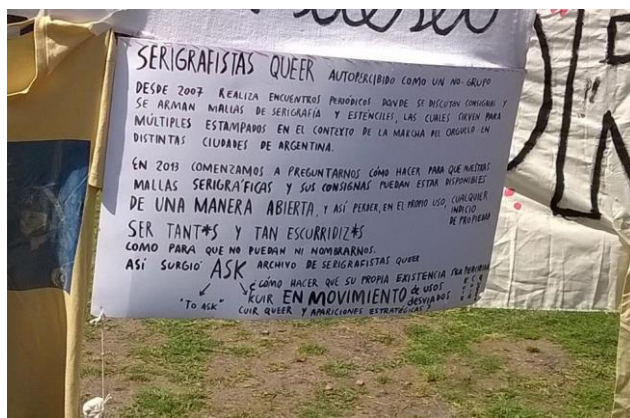 SERIGRAFISTAS QUEER AUTOPERCIBIDO COMO UN NO-GRUPO
DESDE 2007 REALIZA ENCUENTROS PERIÓDICOS DONDE SE DISCUTEN CONSIGNAS Y
SE ARMAN MALLAS DE SERIGRAFÍA Y ESTÉNCILES, LAS CUALES SIRVEN PARA
MÚLTIPLES ESTAMPADOS EN EL CONTEXTO DE LA MARCHA DEL ORGULLO EN
DISTINTAS CIUDADES DE ARGENTINA.
EN 2013 COMENZAMOS A PREGUNTARNOS CÓMO HACER PARA QUE NUESTRAS
MALLAS SERIGRÁFICAS Y SUS CONSIGNAS PUEDAN ESTAR DISPONIBLES
DE UNA MANERA ABIERTA, Y ASÍ PERDER, EN EL PROPIO USO, CUALQUIER
INDICIO
DE PROPIEDAD
SER TANT*S Y TAN ESCURRIDIZ*S
COMO PARA QUE NO PUEDAN NI NOMBRARNOS.
ASÍ SURGIÓ ASK ARCHIVO DE SERIGRAFISTAS QUEER
¿CÓMO HACER QUE SU PROPIA EXISTENCIA SEA
"TO ASK" KUIR EN MOVIMIENTO de usos
desviados
CUIR QUEER Y APARICIONES ESTRATÉGICAS